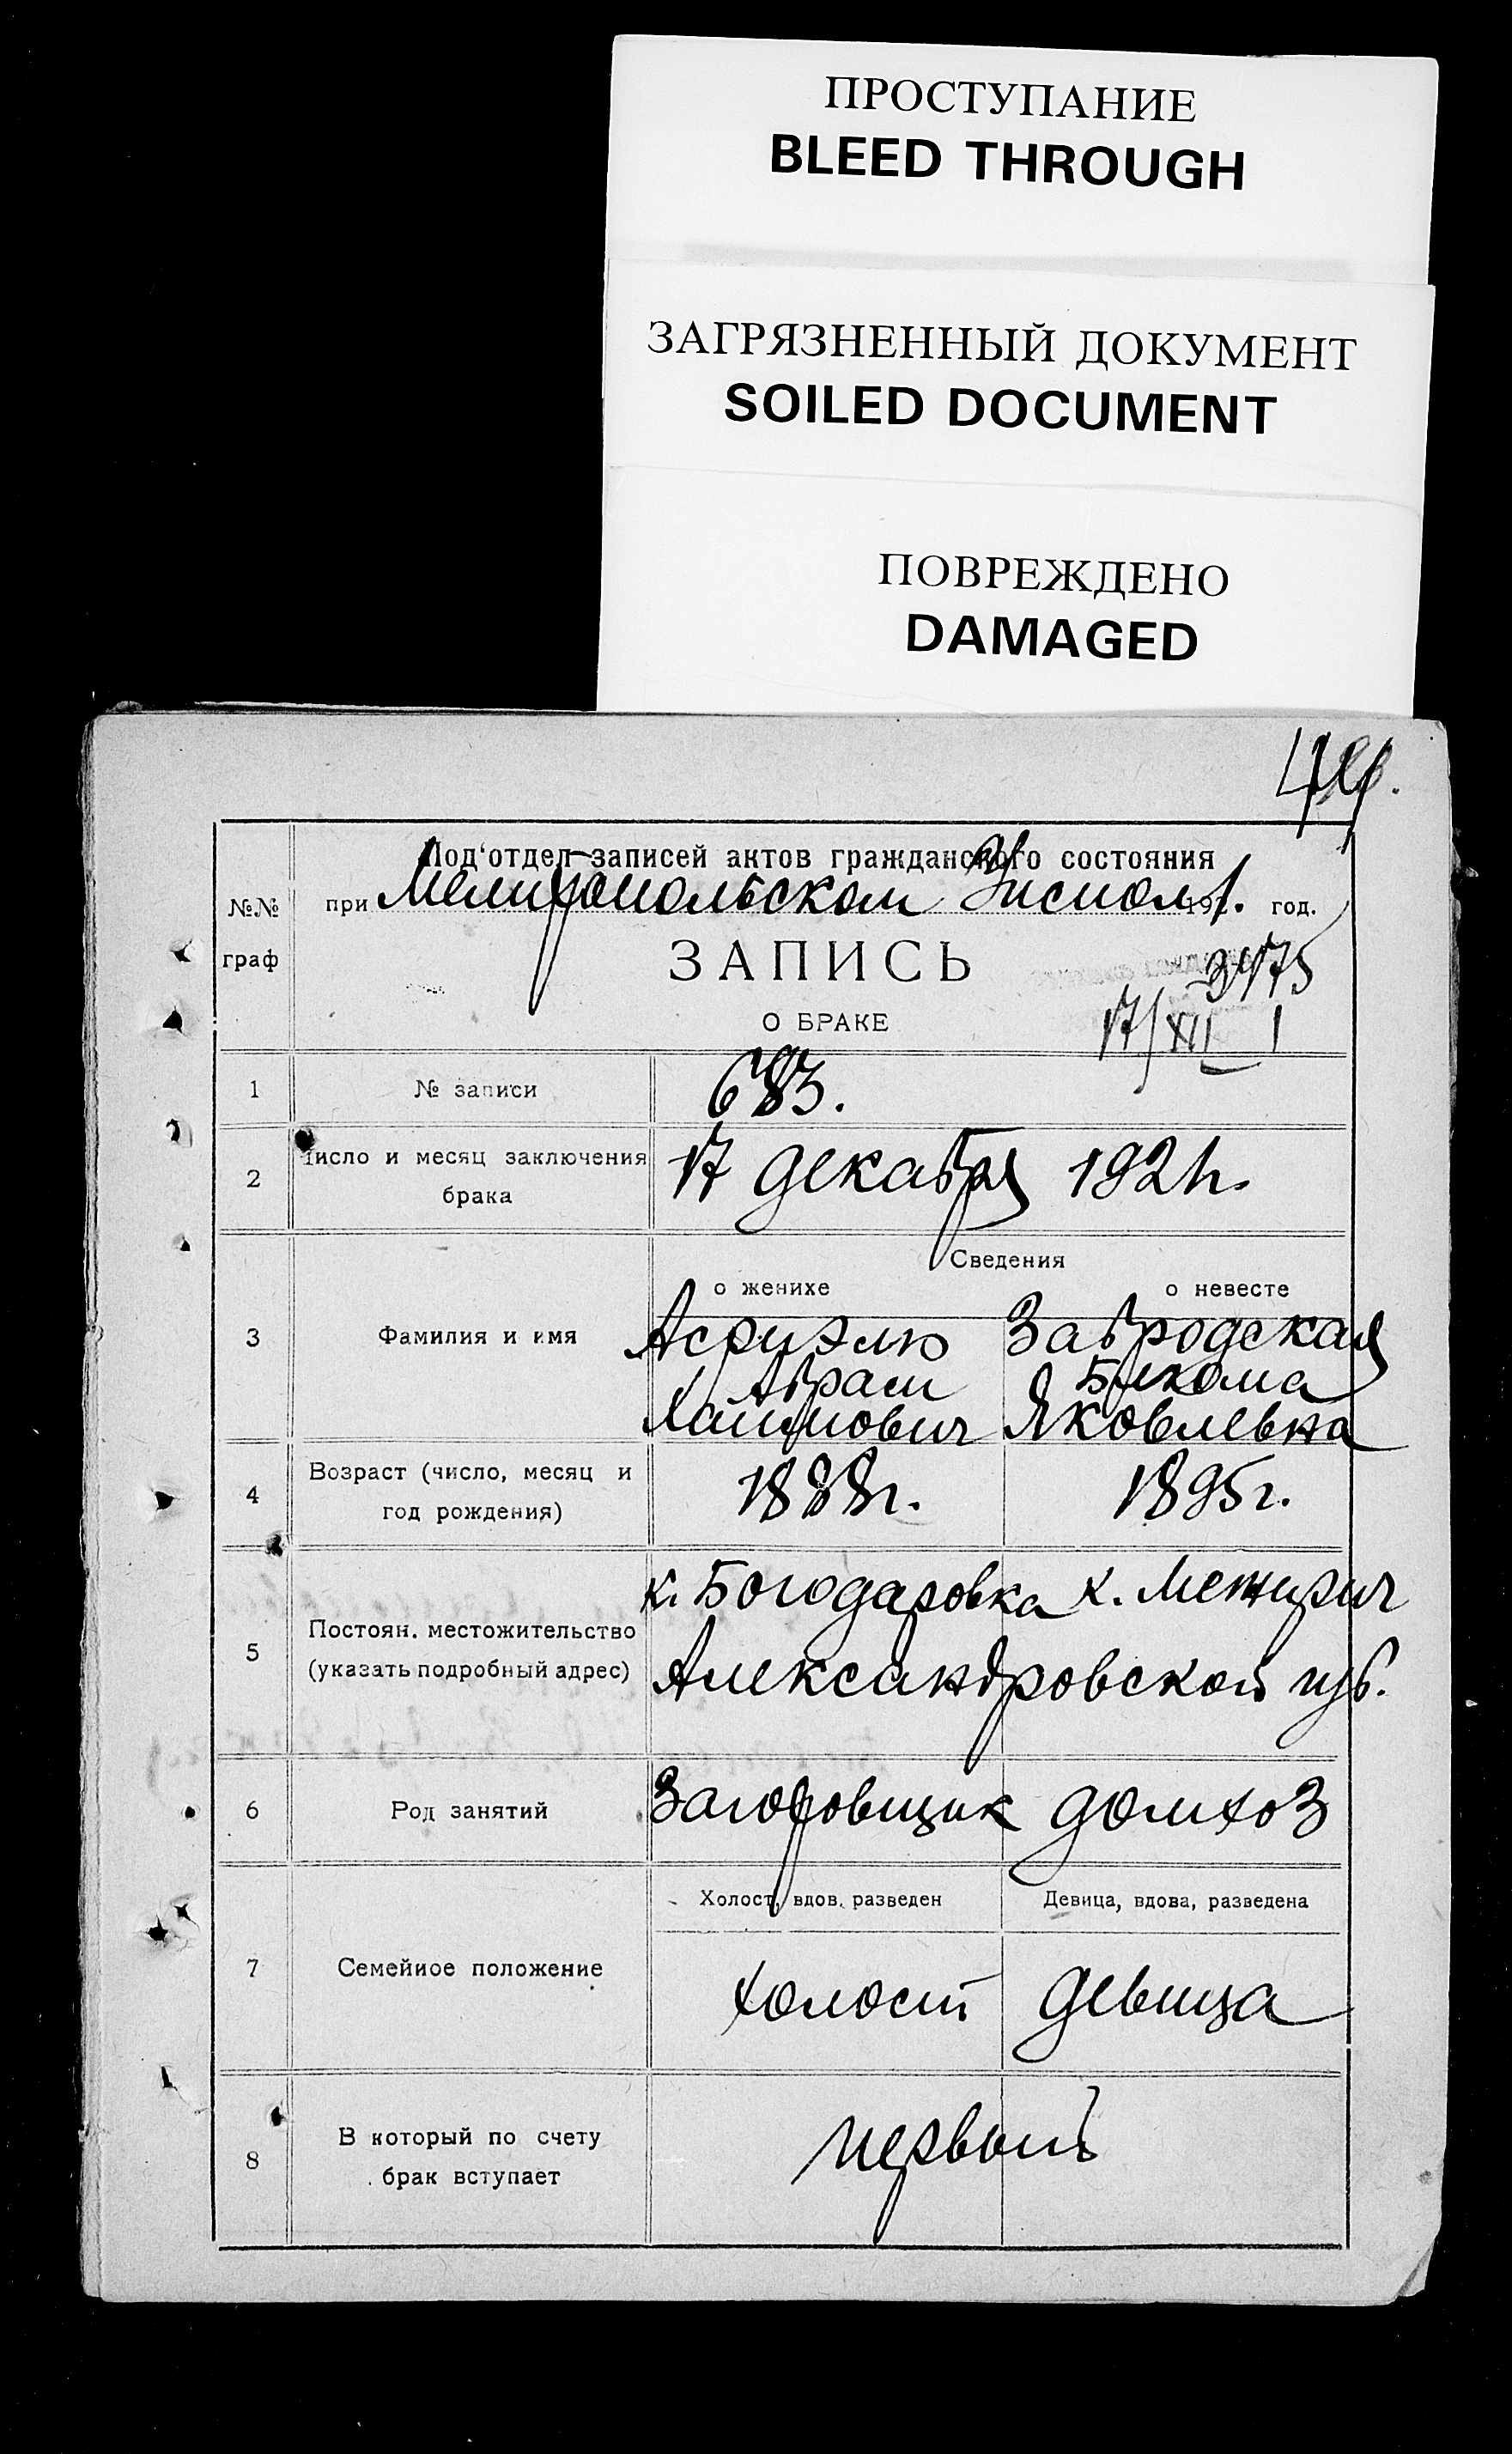 ПРОСТУПАНИЕ
BLEED THROUGH
ЗАГРЯЗНЕННЫЙ ДОКУМЕНТ
SOILED DOCUMENT
ПОВРЕЖДЕНО
DAMAGED
№№ граф
Под'отдел записей актов гражданского состояния
при Мелитопольском Уисполк. 1921 год.
ЗАПИСЬ
3175
О БРАКЕ
17/XII 1
1 № записи 683.
2 Число и месяц заключения брака 17 декабря 1921 г.
Сведения
о женихе о невесте
3 Фамилия и имя Завродская
Абрам
Хаимович Яковлевна
4 Возраст (число, месяц и год рождения) 1888 г. 1895 г.
5 Постоян. местожительство (указать подробный адрес) к. Богодаровка к. Межирич
Александровской губ.
6 Род занятий Заготовщик домхоз
Холост, вдов, разведен Девица, вдова, разведена
7 Семейное положение холост девица
8 В который по счету брак вступает первый